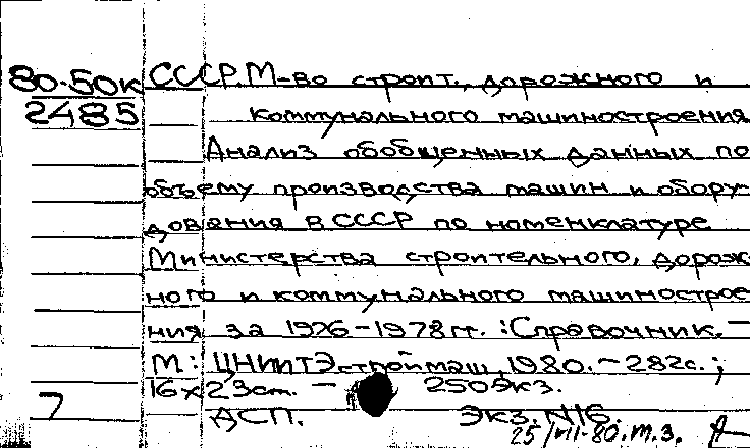 80-50к СССР. М-во строит., дорожного и
2485 коммунального машиностроения
Анализ обобщенных данных по
объему производства машин и обору-
дования в СССР по номенклатуре
Министерства строительного, дорож-
ного и коммунального машинострое-
ния за 1976-1978 гг. : Справочник. -
М: ЦНИИТЭстроймаш, 1980. - 282с.;
16х23см. - 250экз.
7 ДСП. Экз. N16.
25/VII-80. т.з.